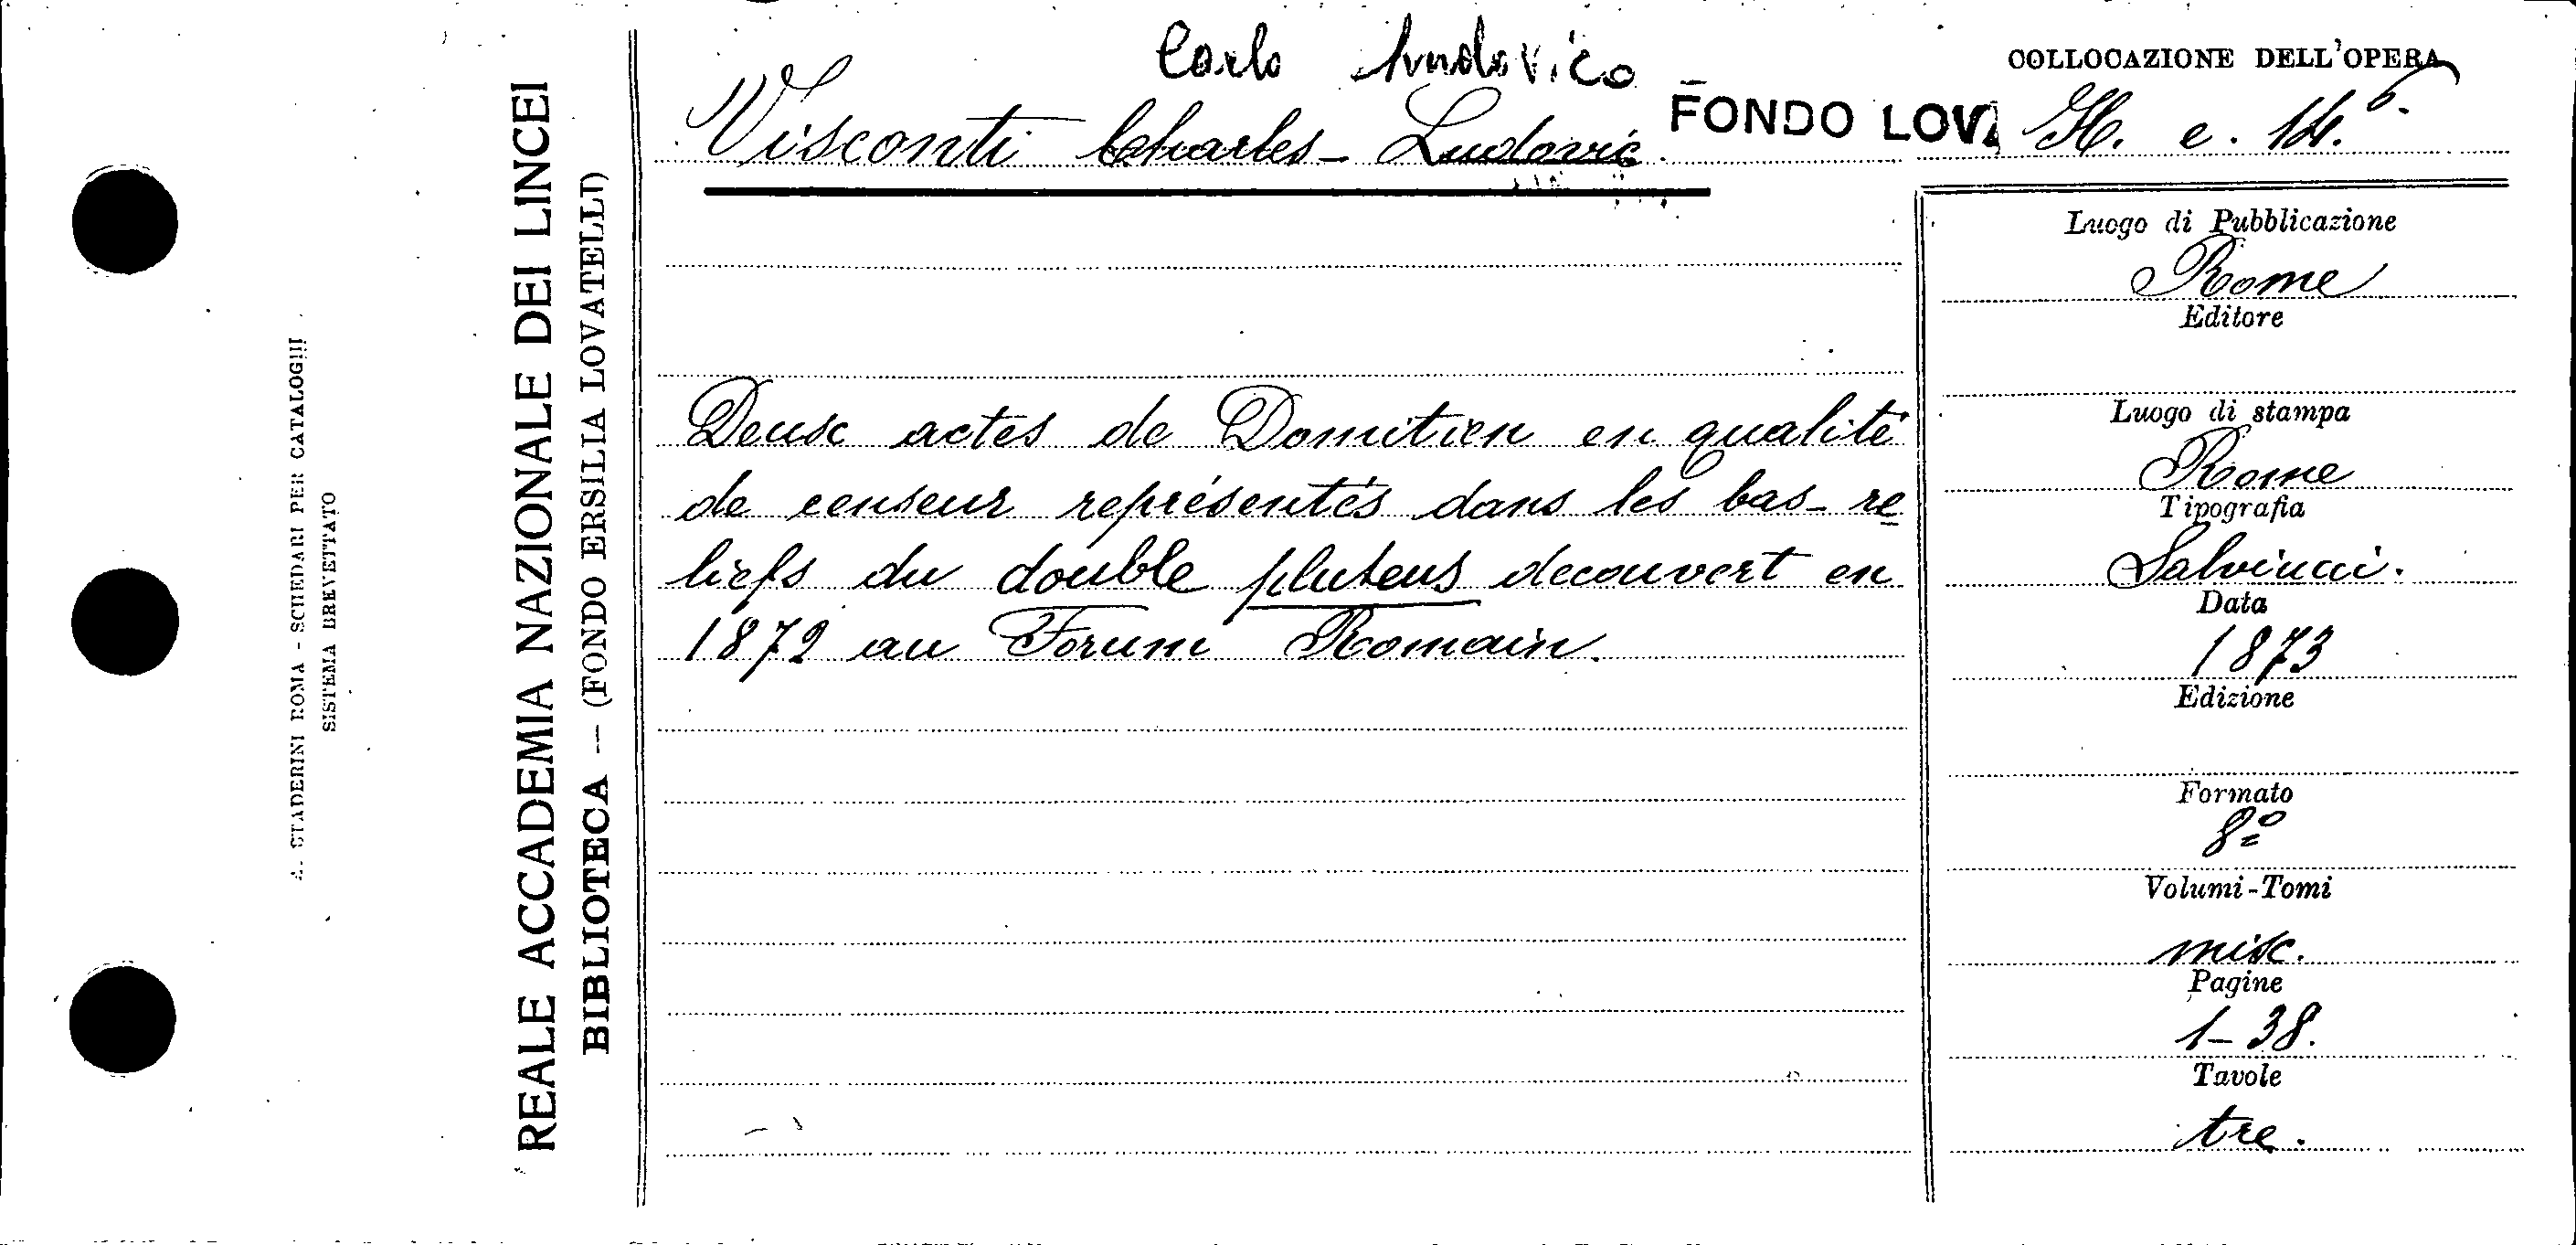 Carlo Ludovico
Visconti Charles-Ludovic.
FONDO LOV
COLLOCAZIONE DELL'OPERA
H. e. 14.6.
Deux actes de Domitien en qualité
de censeur représentés dans les bas-re
liefs du double pluteus decouvert en
1872 au Forum Romain.
Luogo di Pubblicazione
Rome
Editore
Luogo di stampa
Rome
Tipografia
Salviucci.
Data
1873
Edizione
Formato
8º
Volumi-Tomi
misc.
Pagine
1-38.
Tavole
tre.
REALE ACCADEMIA NAZIONALE DEI LINCEI
BIBLIOTECA — (FONDO ERSILIA LOVATELLI)
A. STADERINI ROMA - SCHEDARI PER CATALOGHI
SISTEMA BREVETTATO